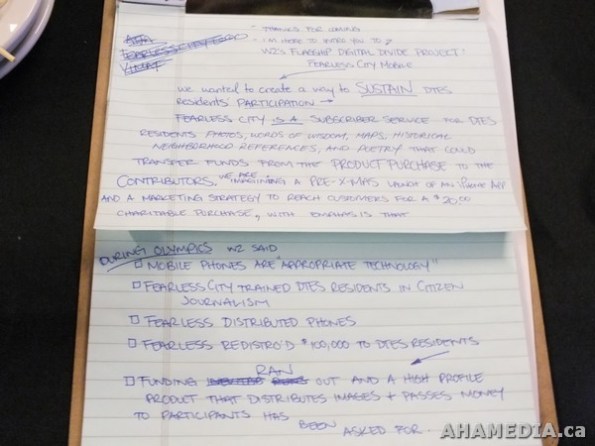 THANKS FOR COMING
I'M HERE TO INTRO YOU TO
W2'S FLAGSHIP DIGITAL DIVIDE PROJECT:
FEARLESS CITY MOBILE
WE WANTED TO CREATE A WAY TO SUSTAIN DTES
RESIDENTS' PARTICIPATION →
FEARLESS CITY IS A SUBSCRIBER SERVICE FOR DTES
RESIDENTS PHOTOS, WORDS OF WISDOM, MAPS, HISTORICAL
NEIGHBORHOOD REFERENCES, AND POETRY THAT COULD
TRANSFER FUNDS FROM THE PRODUCT PURCHASE TO THE
CONTRIBUTORS. WE ARE IMAGINING A PRE-X-MAS LAUNCH OF AN iPHONE APP
AND A MARKETING STRATEGY TO REACH CUSTOMERS FOR A $20.00
CHARITABLE PURCHASE, WITH EMPHASIS THAT
DURING OLYMPICS W2 SAID
□ MOBILE PHONES ARE "APPROPRIATE TECHNOLOGY"
□ FEARLESS CITY TRAINED DTES RESIDENTS IN CITIZEN
JOURNALISM
□ FEARLESS DISTRIBUTED PHONES
□ FEARLESS REDISTRO'D $100,000 TO DTES RESIDENTS
□ FUNDING RAN OUT AND A HIGH PROFILE
PRODUCT THAT DISTRIBUTES IMAGES + PASSES MONEY
TO PARTICIPANTS HAS BEEN ASKED FOR.
AHAMEDIA.ca